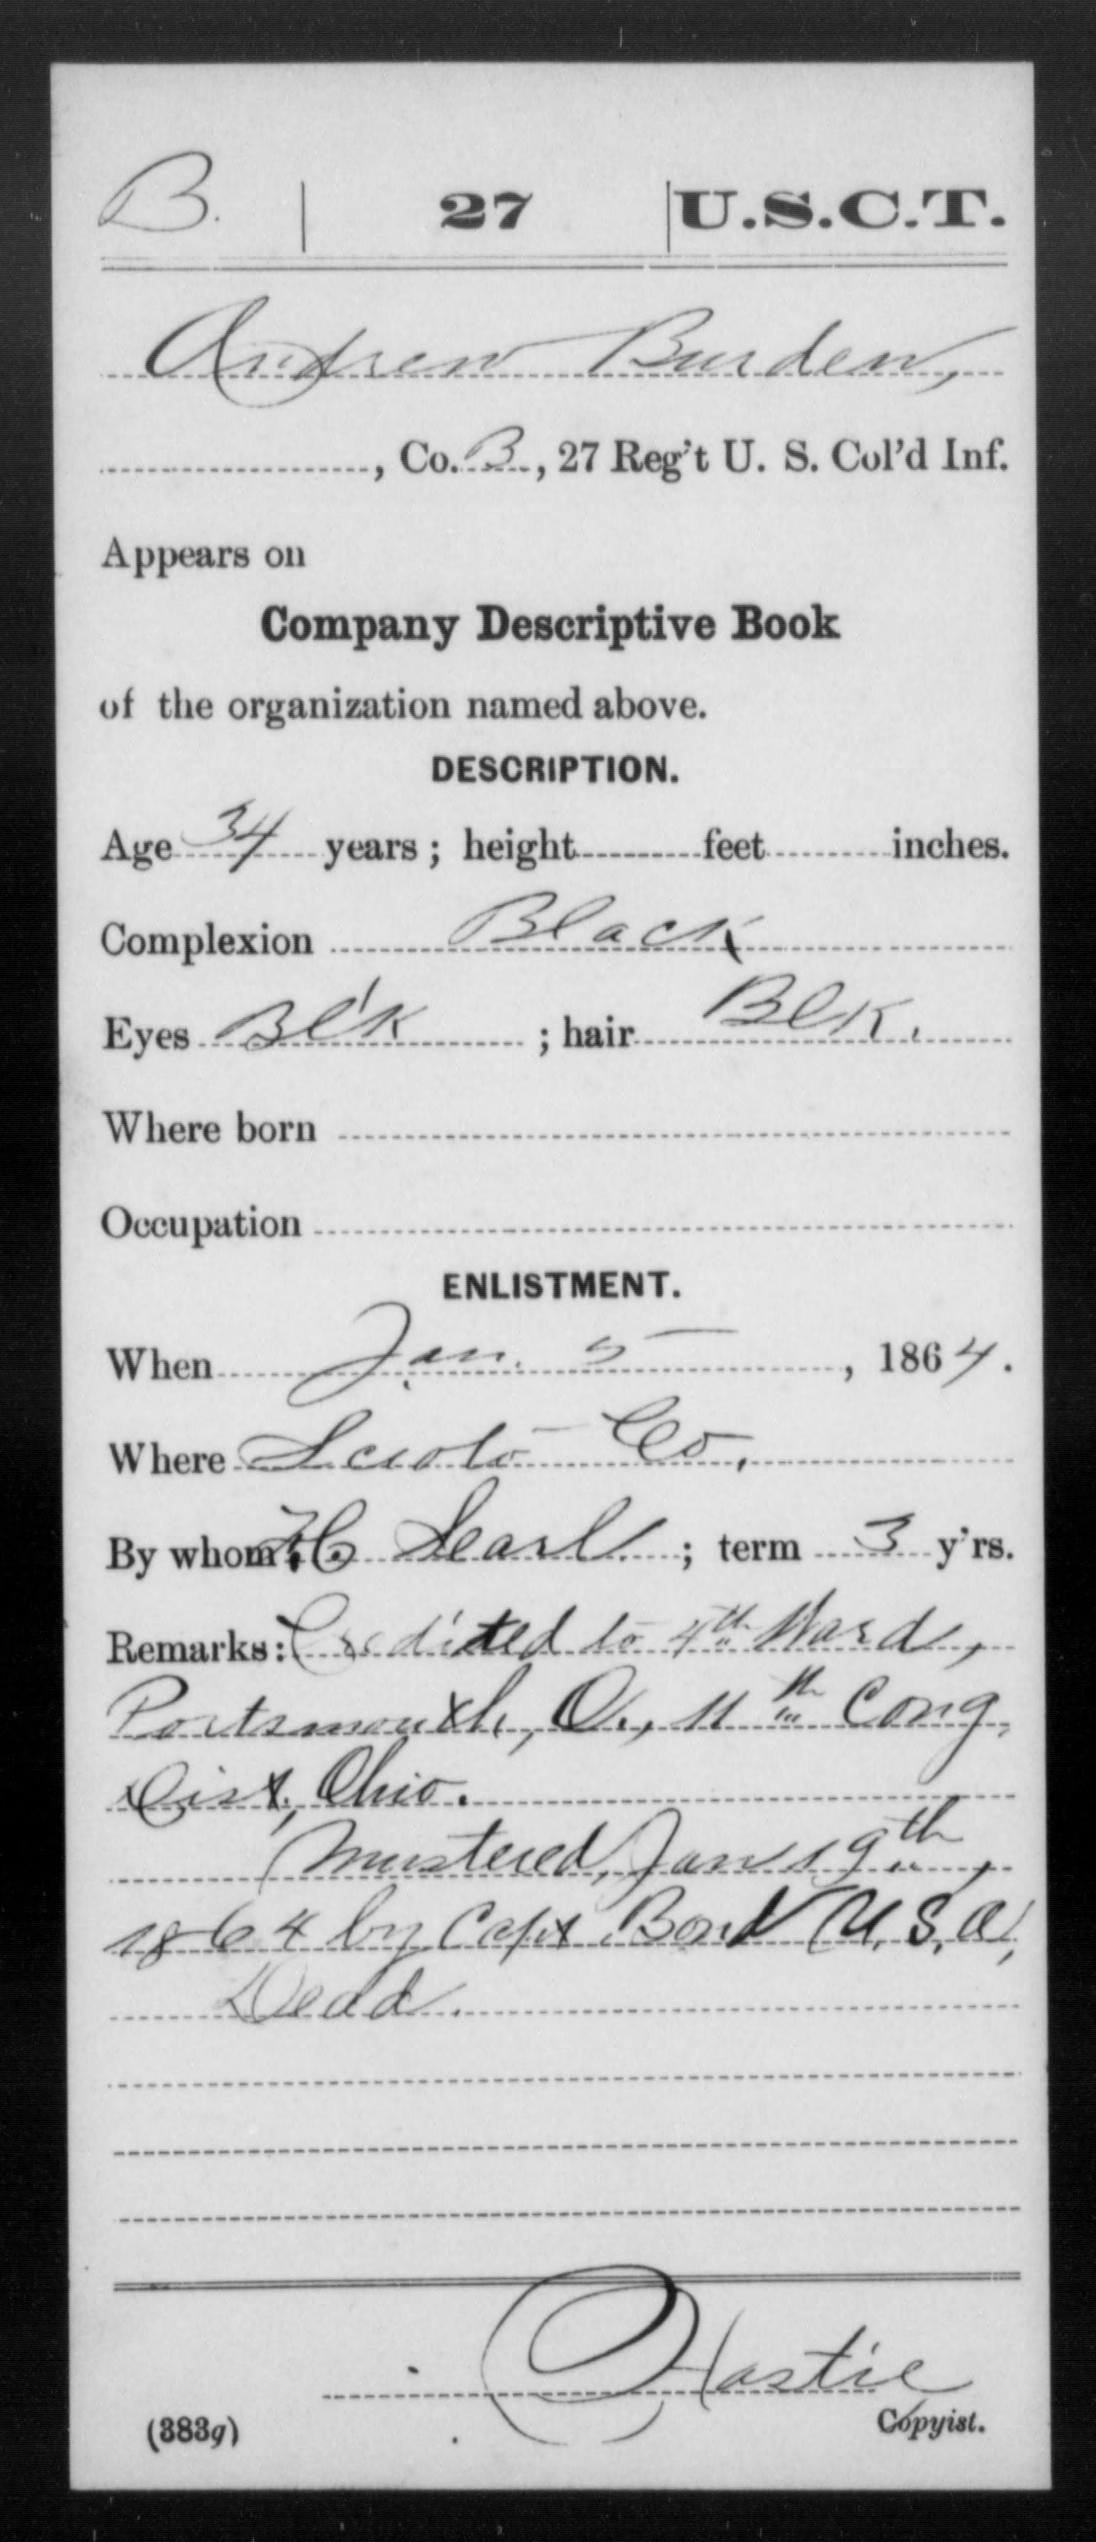 B. | 27 | U.S.C.T.
Andrew Burden,
, Co. B., 27 Reg't U. S. Col'd Inf.
Appears on
Company Descriptive Book
of the organization named above.
DESCRIPTION.
Age 34 years; height feet inches.
Complexion Black
Eyes Bl'k ; hair Blk.
Where born
Occupation
ENLISTMENT.
When Jan. 5, 1864.
Where Scioto Co.
By whom H Searl ; term 3 y'rs.
Remarks: Credited to 4th Ward,
Portsmouth, O., 11th Cong.
Dist, Ohio.
Mustered, Jan 19th,
1864 by Capt. Bond U.S.A,
Dead.
Hastie
Copyist.
(383g)